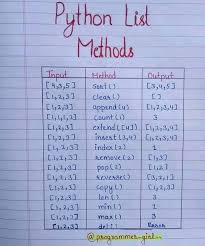 Python List
Methods
Input Method Output
[4,3,5] sort() [3,4,5]
[1,2,3] clear() []
[1,2,3] append(4) [1,2,3,4]
[1,1,1,2] count(1) 3
[1,2,3] extend([4]) [1,2,3,4]
[1,2,3] insert(3,4) [1,2,3,4]
[1,2,3] index(2) 1
[1,2,3] remove(2) [1,3]
[1,2,3] pop(2) [1,2]
[1,2,3] reverse() [3,2,1]
[1,2,3] copy() [1,2,3]
[1,2,3] len() 3
[1,2,3] min() 1
[1,2,3] max() 3
[1,2,3] del()
@programmer_girl